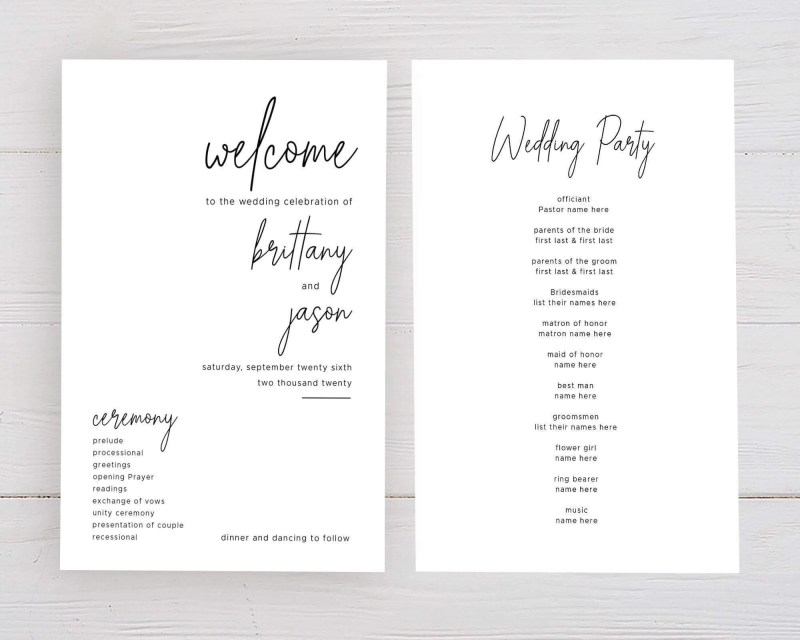 welcome
to the wedding celebration of
brittany
and
jason
saturday, september twenty sixth
two thousand twenty
ceremony
prelude
processional
greetings
opening Prayer
readings
exchange of vows
unity ceremony
presentation of couple
recessional
dinner and dancing to follow
Wedding Party
officiant
Pastor name here
parents of the bride
first last & first last
parents of the groom
first last & first last
Bridesmaids
list their names here
matron of honor
matron name here
maid of honor
name here
best man
name here
groomsmen
list their names here
flower girl
name here
ring bearer
name here
music
name here